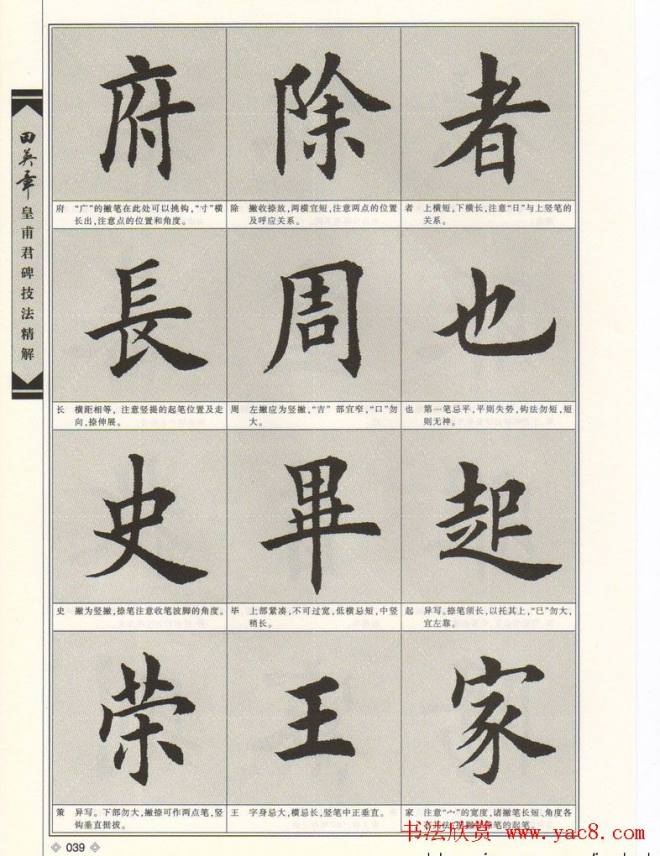 田英章
皇甫君碑技法精解
府 除 者
府 “广”的撇笔在此处可以挑钩,“寸”横
长出,注意点的位置和角度。
除 撇收捺放,两横宜短,注意两点的位置
及呼应关系。
者 上横短,下横长,注意“日”与上竖笔的
关系。
長 周 也
长 横距相等,注意竖提的起笔位置及走
向,捺伸展。
周 左撇应为竖撇,“吉”部宜窄,“口”勿
大。
也 第一笔忌平,平则失势,钩法勿短,短
则无神。
史 畢 起
史 撇为竖撇,捺笔注意收笔波脚的角度。
毕 上部紧凑,不可过宽,低横忌短,中竖
稍长。
起 异写。捺笔须长,以托其上,“已”勿大,
宜左靠。
荣 王 家
策 异写。下部勿大,撇捺可作两点笔,竖
钩垂直挺拔。
王 字身忌大,横忌长,竖笔中正垂直。
家 注意“宀”的宽度,诸撇长短、角度各
笔的起笔。
书法欣赏 www.yac8.com
039